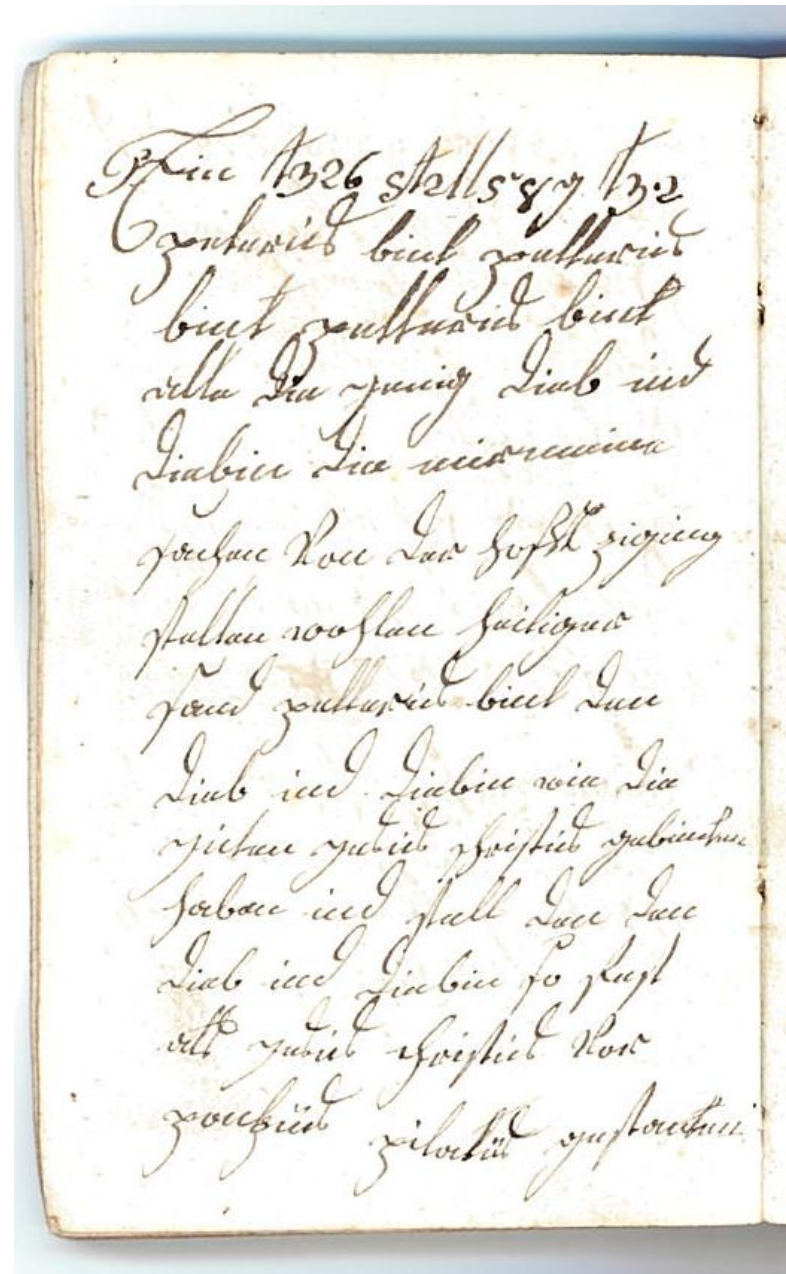 Ein t326 st2lls 8 g t3.2
peterus bint petterus
bint petterus bint
alle die jenig dieb und
diebin die mir meine
sachen Von der hofst
stellen wohlen heiliger
sand petterus bint den
dieb und diebin wie die
juten jesus christus gebunten
haben und stell den den
dieb und diebin so fest
als jesus christus Vor
ponzius pilatus gestanten